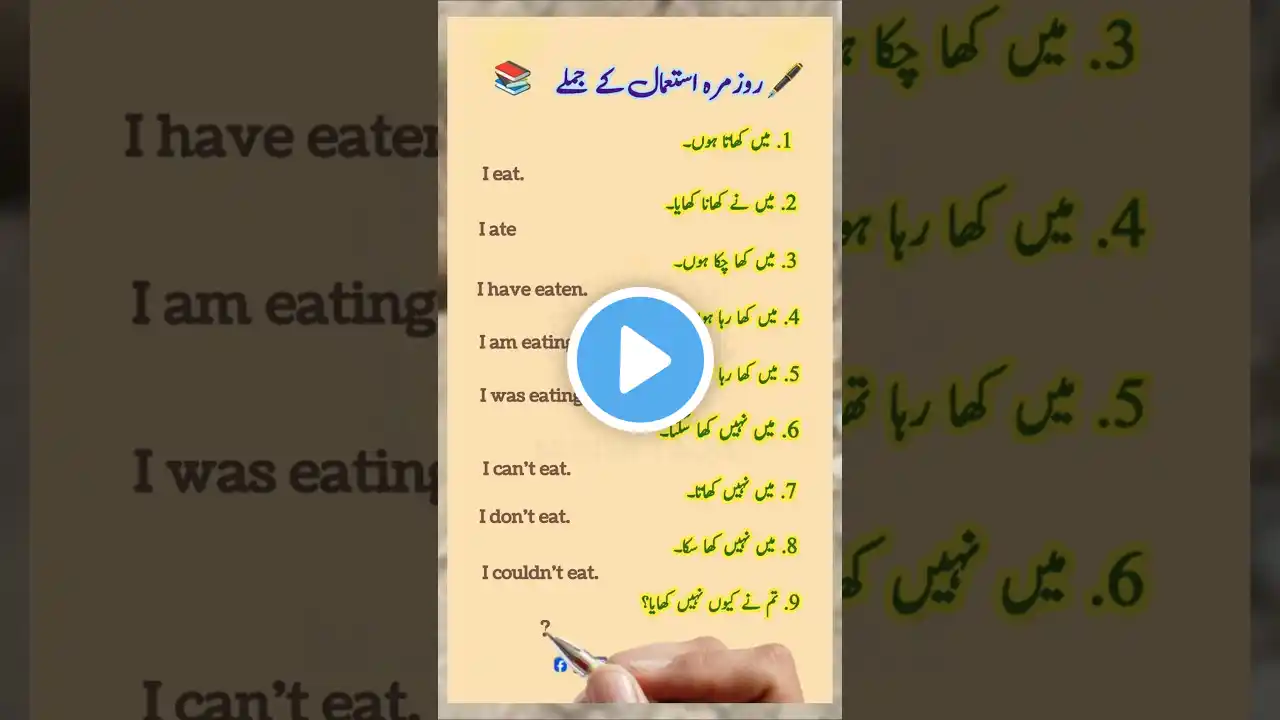 روزمرہ استعمال کے جملے
1. میں کھاتا ہوں۔
I eat.
2. میں نے کھانا کھایا۔
I ate
3. میں کھا چکا ہوں۔
I have eaten.
4. میں کھا رہا
I am eating
5. میں کھا رہا
I was eating
6. میں نہیں کھا سکتا۔
I can't eat.
7. میں نہیں کھاتا۔
I don't eat.
8. میں نہیں کھا سکا۔
I couldn't eat.
9. تم نے کیوں نہیں کھایا؟
?
I have eaten
I am eating
I was eating
I can't eat.
3. میں کھا چکا
4. میں کھا رہا
5. میں کھا رہا
6. میں نہیں